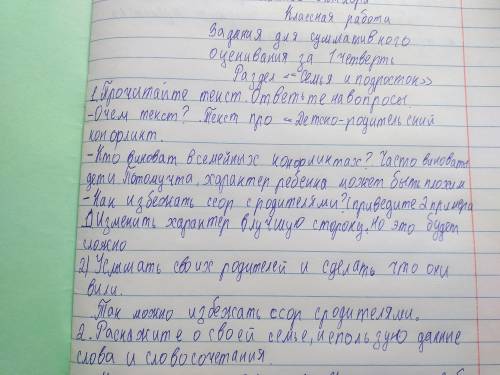 Классная работа
Задания для суммативного
оценивания за 1 четверть
Раздел «Семья и подросток»
1. Прочитайте текст. Ответьте на вопросы.
- О чем текст? Текст про «Детско-родительский
конфлинкт.
- Кто виноват в семейных конфлинктах? Часто виноваты
дети. Потому чта, характер ребенка может быть плохим
- Как избежать ссор с родителями? (приведите 2 примера
1) Изменить характер в лучшую сторону, но это будет
сложно
2) Услышать своих родителей и сделать что они
вили.
Так можно избежать ссор с родителями.
2. Раскажите о своей семье, использую данные
слова и словосочетания.